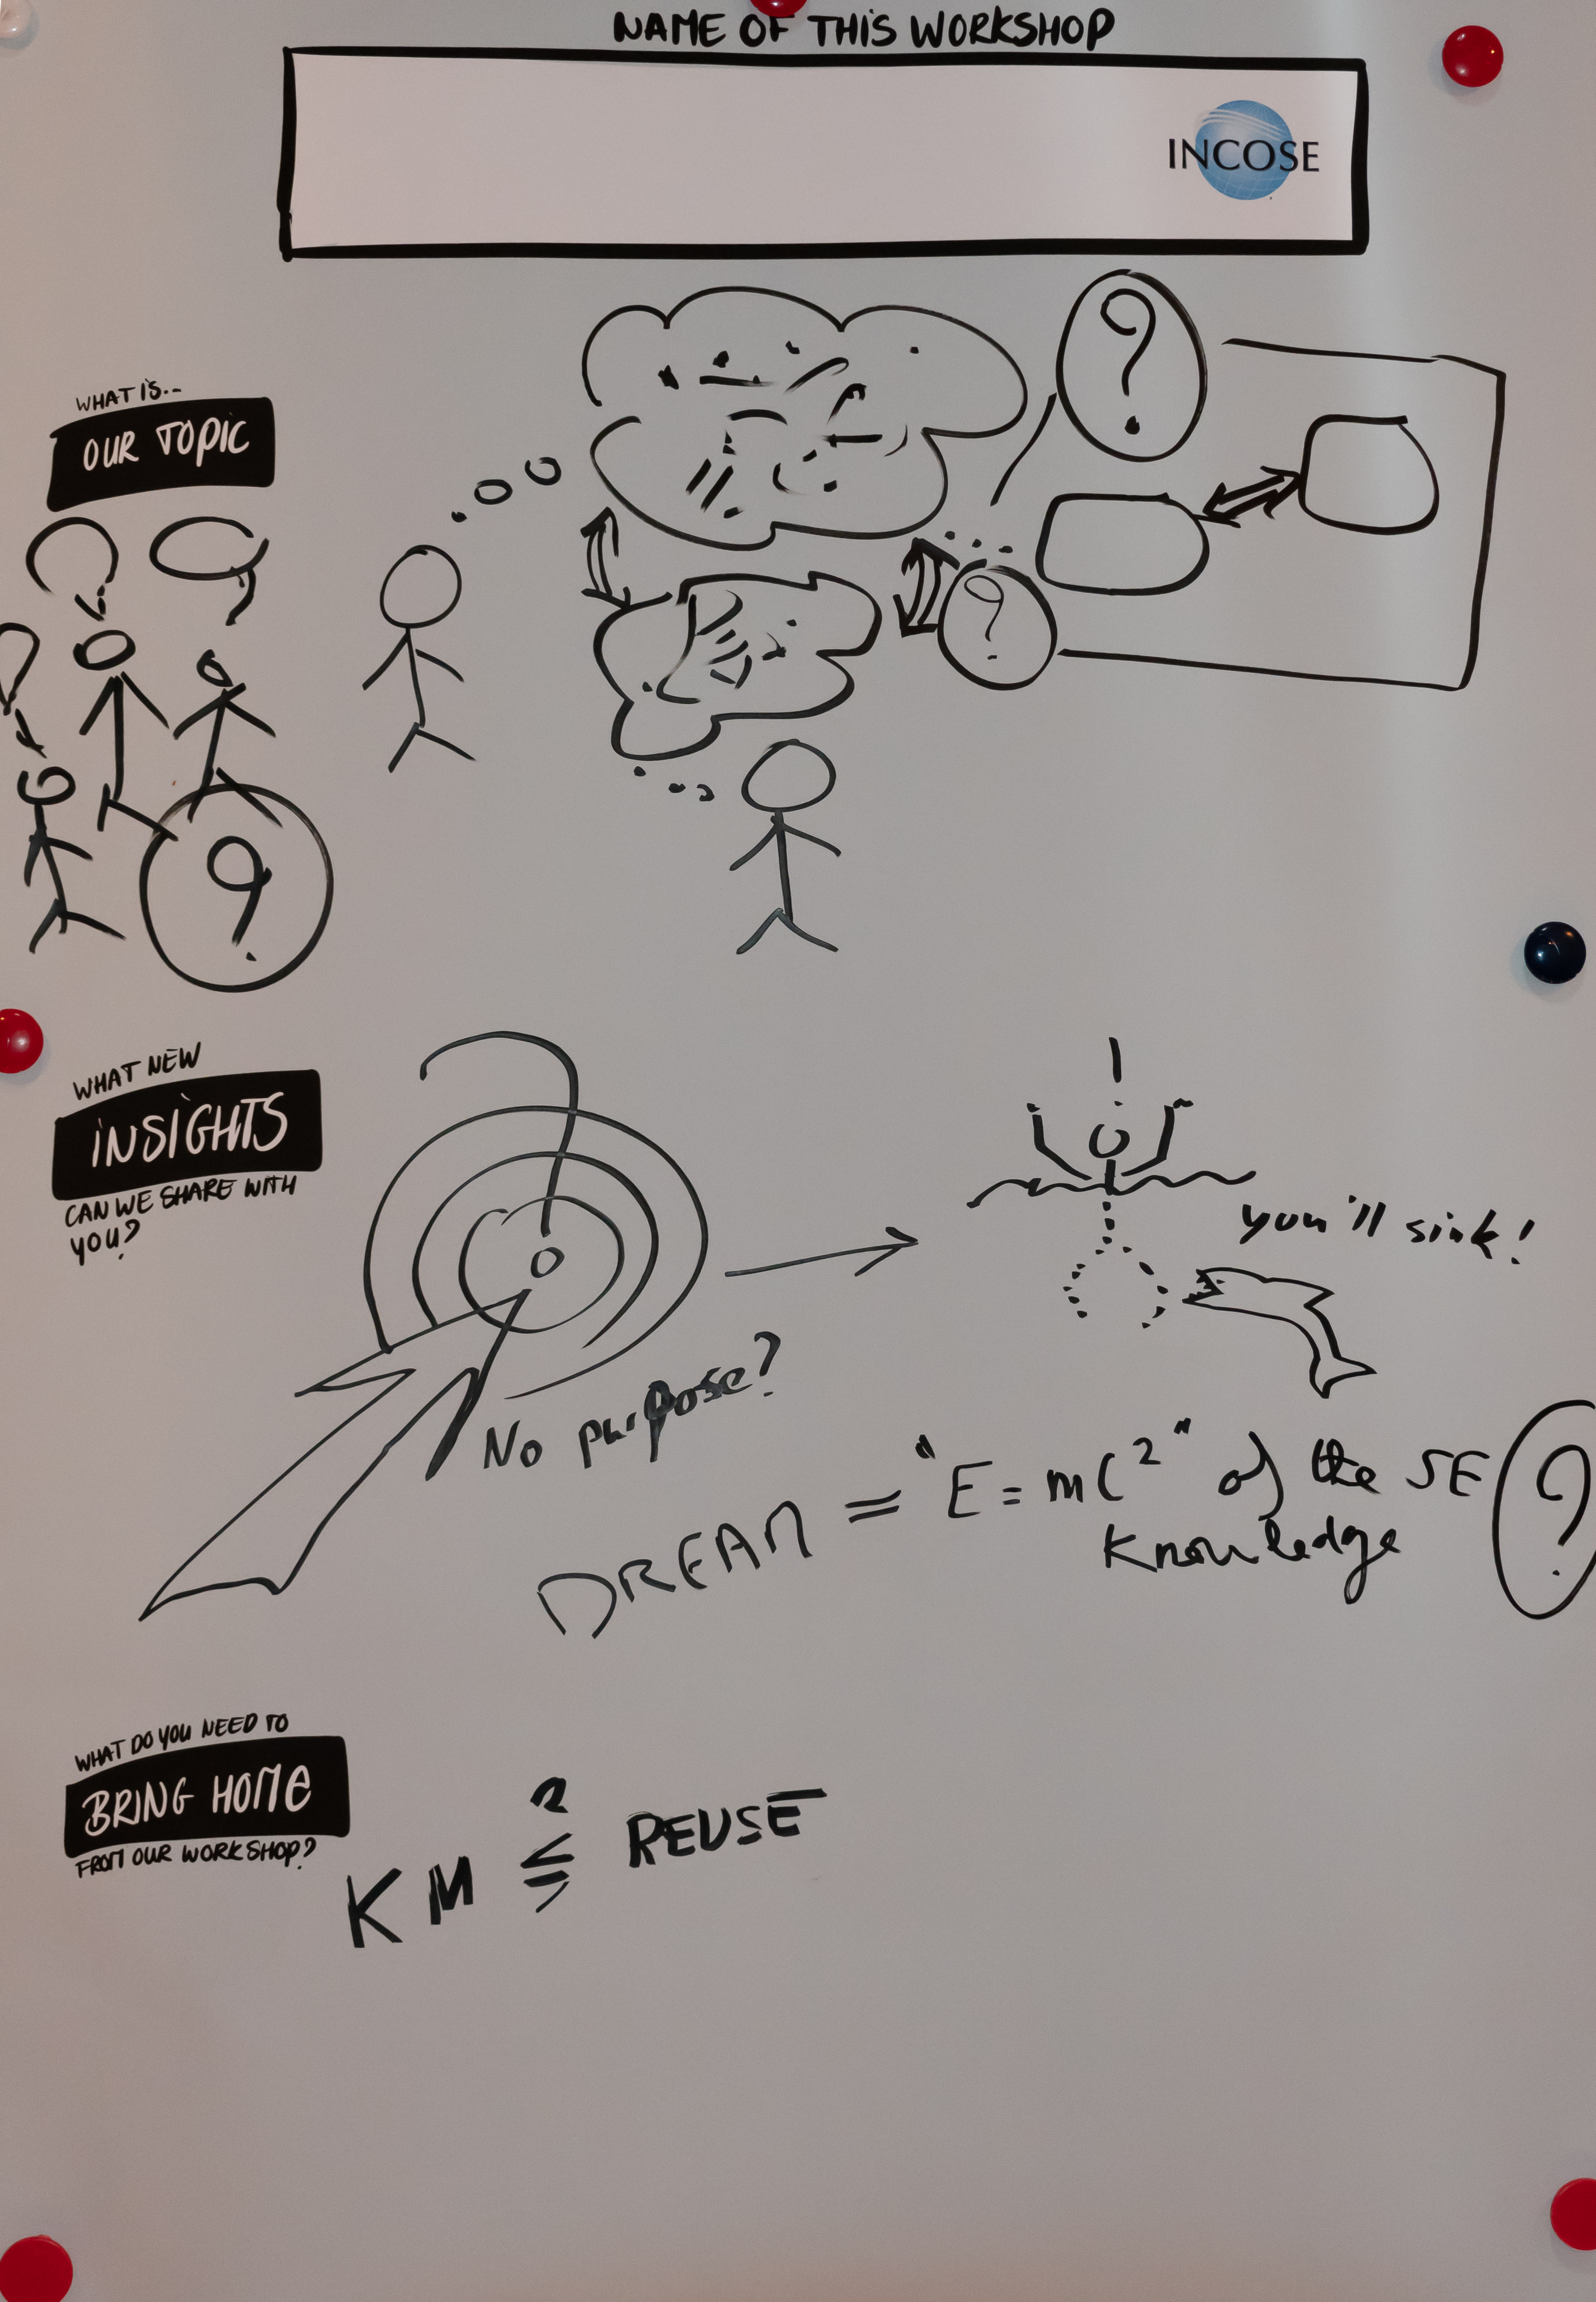 NAME OF THIS WORKSHOP
INCOSE
WHAT IS..
OUR TOPIC
?
?
?
WHAT NEW
INSIGHTS
CAN WE SHARE WITH
YOU?
No purpose?
you'll sink!
DREAM = "E = mC²" of the SE
Knowledge
?
WHAT DO YOU NEED TO
BRING HOME
FROM OUR WORKSHOP?
?
KM ≤ REUSE